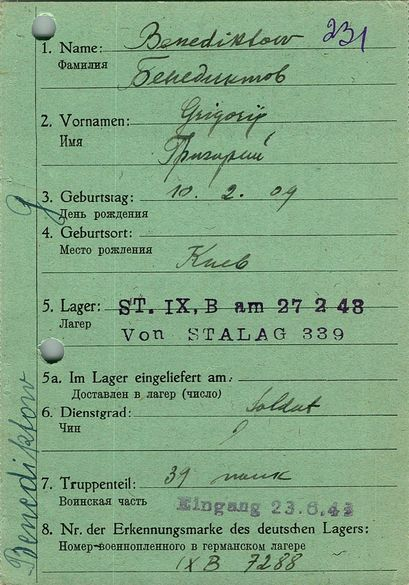 231
1. Name: Benediktow
Фамилия
Бенедиктов
2. Vornamen: Grigorij
Имя
Григорий
3. Geburtstag: 10. 2. 09
День рождения
4. Geburtsort:
Место рождения
Киев
5. Lager: ST. IX, B am 27 2 43
Лагерь
Von STALAG 339
5a. Im Lager eingeliefert am:
Доставлен в лагерь (число)
6. Dienstgrad: Soldat
Чин
7. Truppenteil: 39 полк
Воинская часть
Eingang 23.6.43
8. Nr. der Erkennungsmarke des deutschen Lagers:
Номер военнопленного в германском лагере
IX B 7288
Benediktow